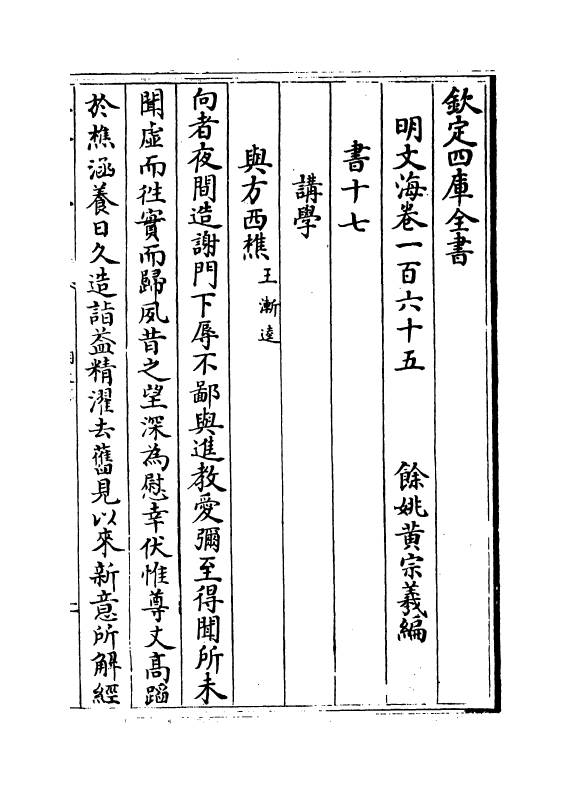 欽定四庫全書
明文海卷一百六十五　餘姚黃宗羲編
書十七
講學
與方西樵王漸逵
向者夜間造謝門下辱不鄙與進教愛彌至得聞所未
聞虛而徃實而歸夙昔之望深為慰幸伏惟尊丈高蹈
於樵涵養日久造詣益精濯去舊見以來新意所解經